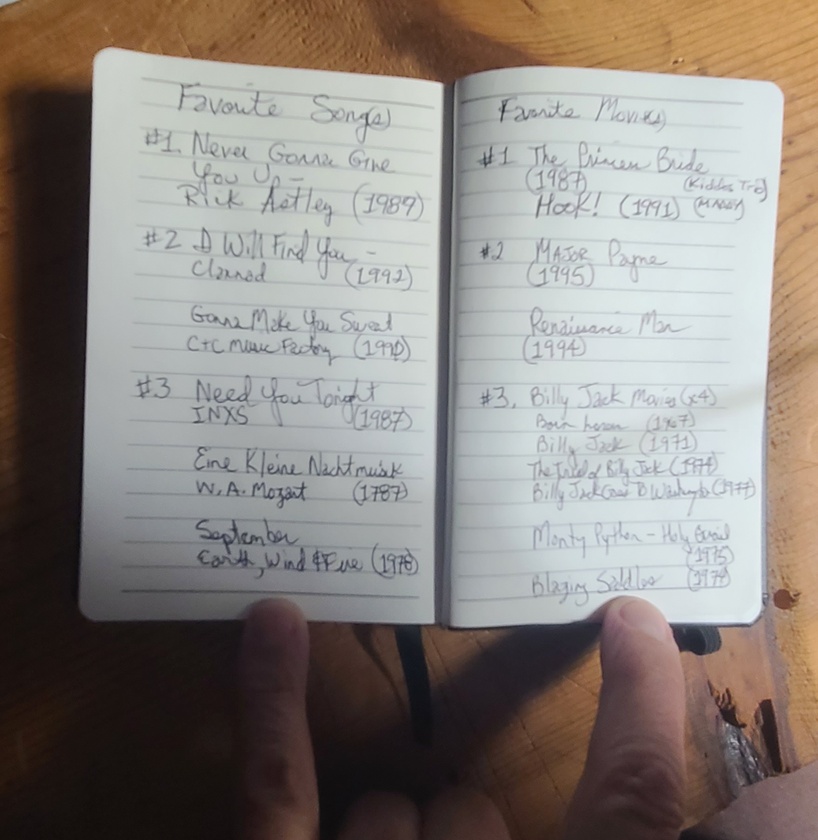 Favorite Song(s)
#1. Never Gonna Give
You Up -
Rick Astley (1989)
#2 I Will Find You -
Clannad (1992)
Gonna Make You Sweat
C+C Music Factory (1990)
#3 Need You Tonight
INXS (1987)
Eine Kleine Nachtmusik
W.A. Mozart (1787)
September
Earth, Wind & Fire (1978)
Favorite Movie(s)
#1 The Princess Bride
(1987) (Kiddos
Hook! (1991)
#2 Major Payne
(1995)
Renaissance Man
(1994)
#3. Billy Jack Movies (x4)
Born Losers (1967)
Billy Jack (1971)
The Trial of Billy Jack (1974)
Billy Jack Goes to Washington (1977)
Monty Python - Holy Grail
(1975)
Blazing Saddles (1974)